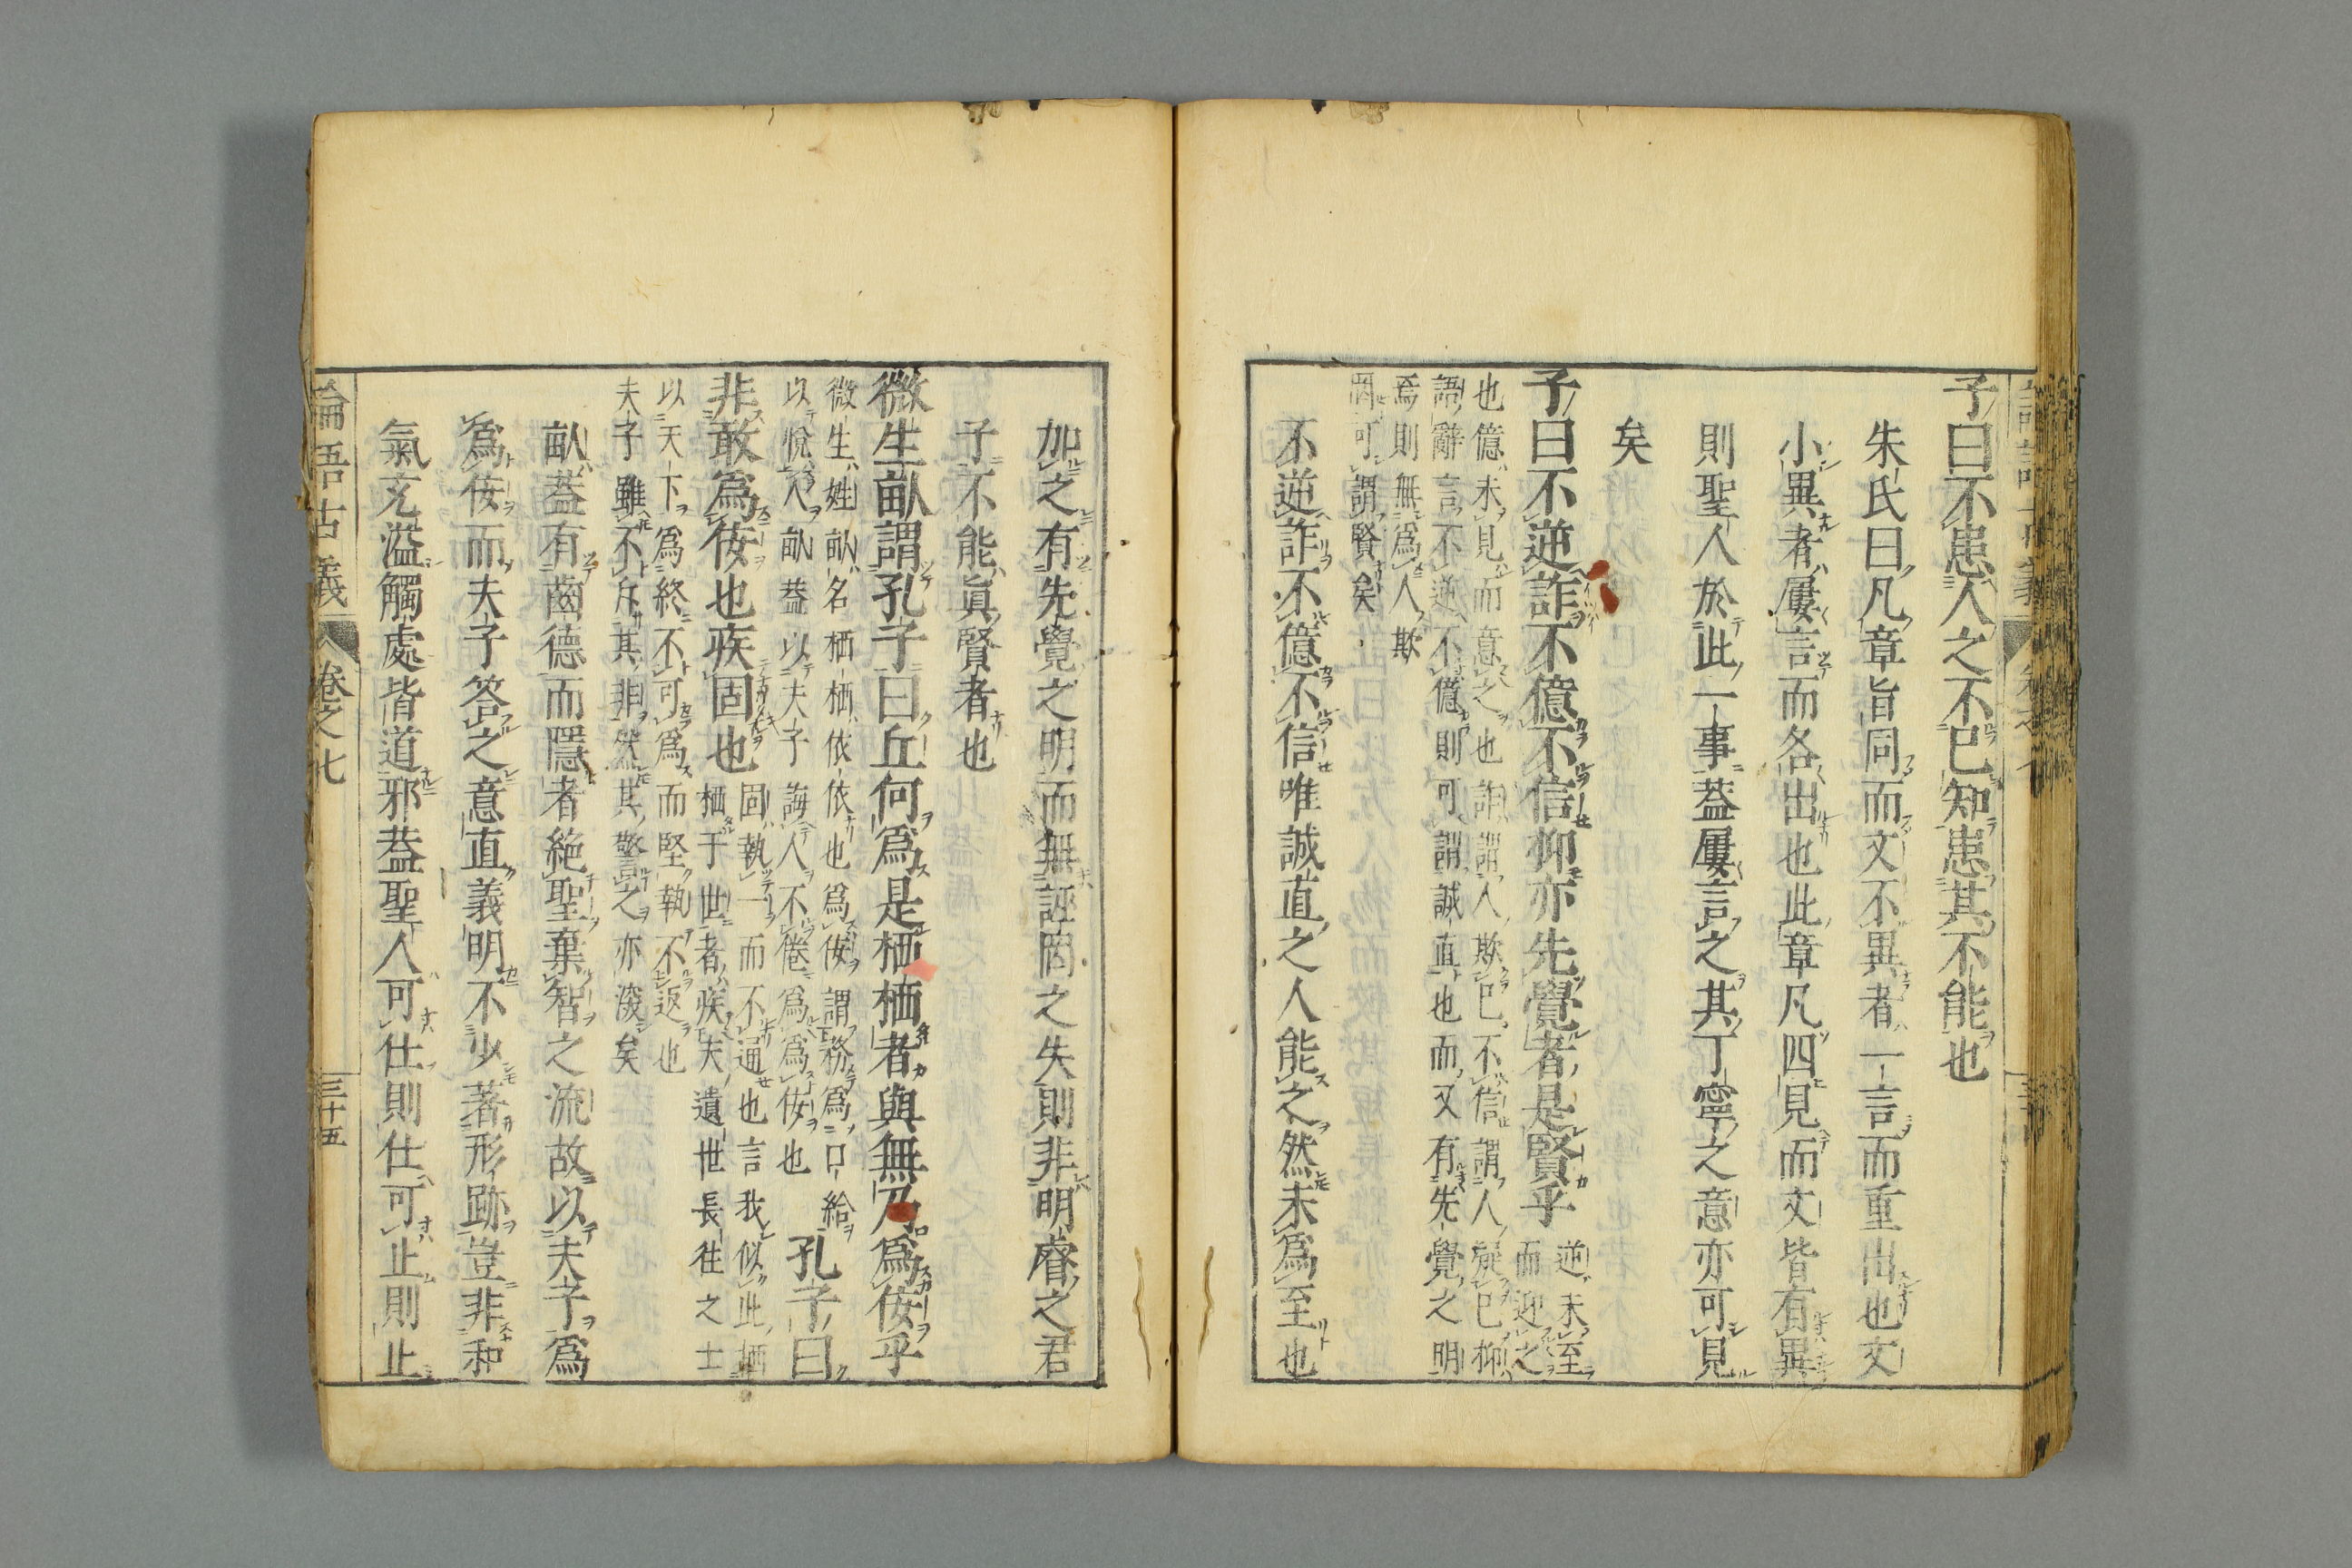 子曰不患人之不已知患其不能也
朱氏曰凡章旨同而文不異者一言而重出也文
小異者屢言而各出也此章凡四見而文皆有異
則聖人於此一事葢屢言之其丁寧之意亦可見
矣
子曰不逆詐不億不信抑亦先覺者是賢乎
逆未至
而迎之
也億未見而意之也詐謂人欺已不信謂人疑已抑
語辭言不逆不億則可謂誠直也而又有先覺之明
焉則無爲人欺
罔可謂賢矣
不逆詐不億不信唯誠直之人能之然未爲至也
加之有先覺之明而無誣罔之失則非明睿之君
子不能眞賢者也
微生畝謂孔子曰丘何爲是栖栖者與無乃爲佞乎
微生姓畝名栖栖依依也爲佞謂務爲口給
以悅人畝葢以夫子誨人不倦爲爲佞也
孔子曰
非敢爲佞也疾固也
固執一而不通也言我似此栖
栖于世者疾夫遺世長往之士
以天下爲終不可爲而堅執不返也
夫子雖不斥其非然其警之亦深矣
畝葢有齒德而隱者絶聖棄智之流故以夫子爲
爲佞而夫子答之意直義明不少著形跡豈非和
氣充溢觸處皆道邪葢聖人可仕則仕可止則止
論語古義
卷之七
三十五